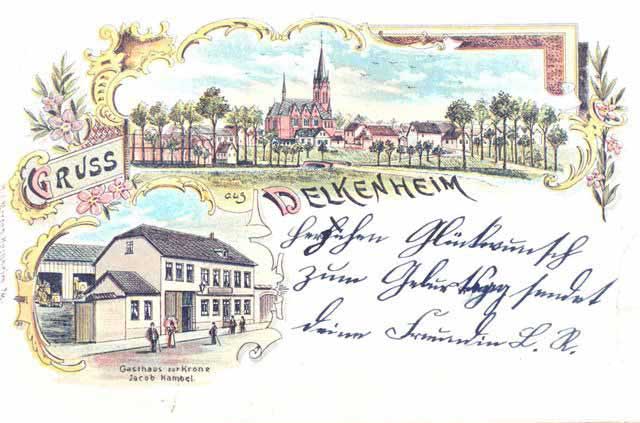 GRUSS
aus DELKENHEIM
Herzlichen Glückwunsch
zum Geburtstag sendet
deine Freundin L. R.
Gasthaus zur Krone
Jacob Kambel